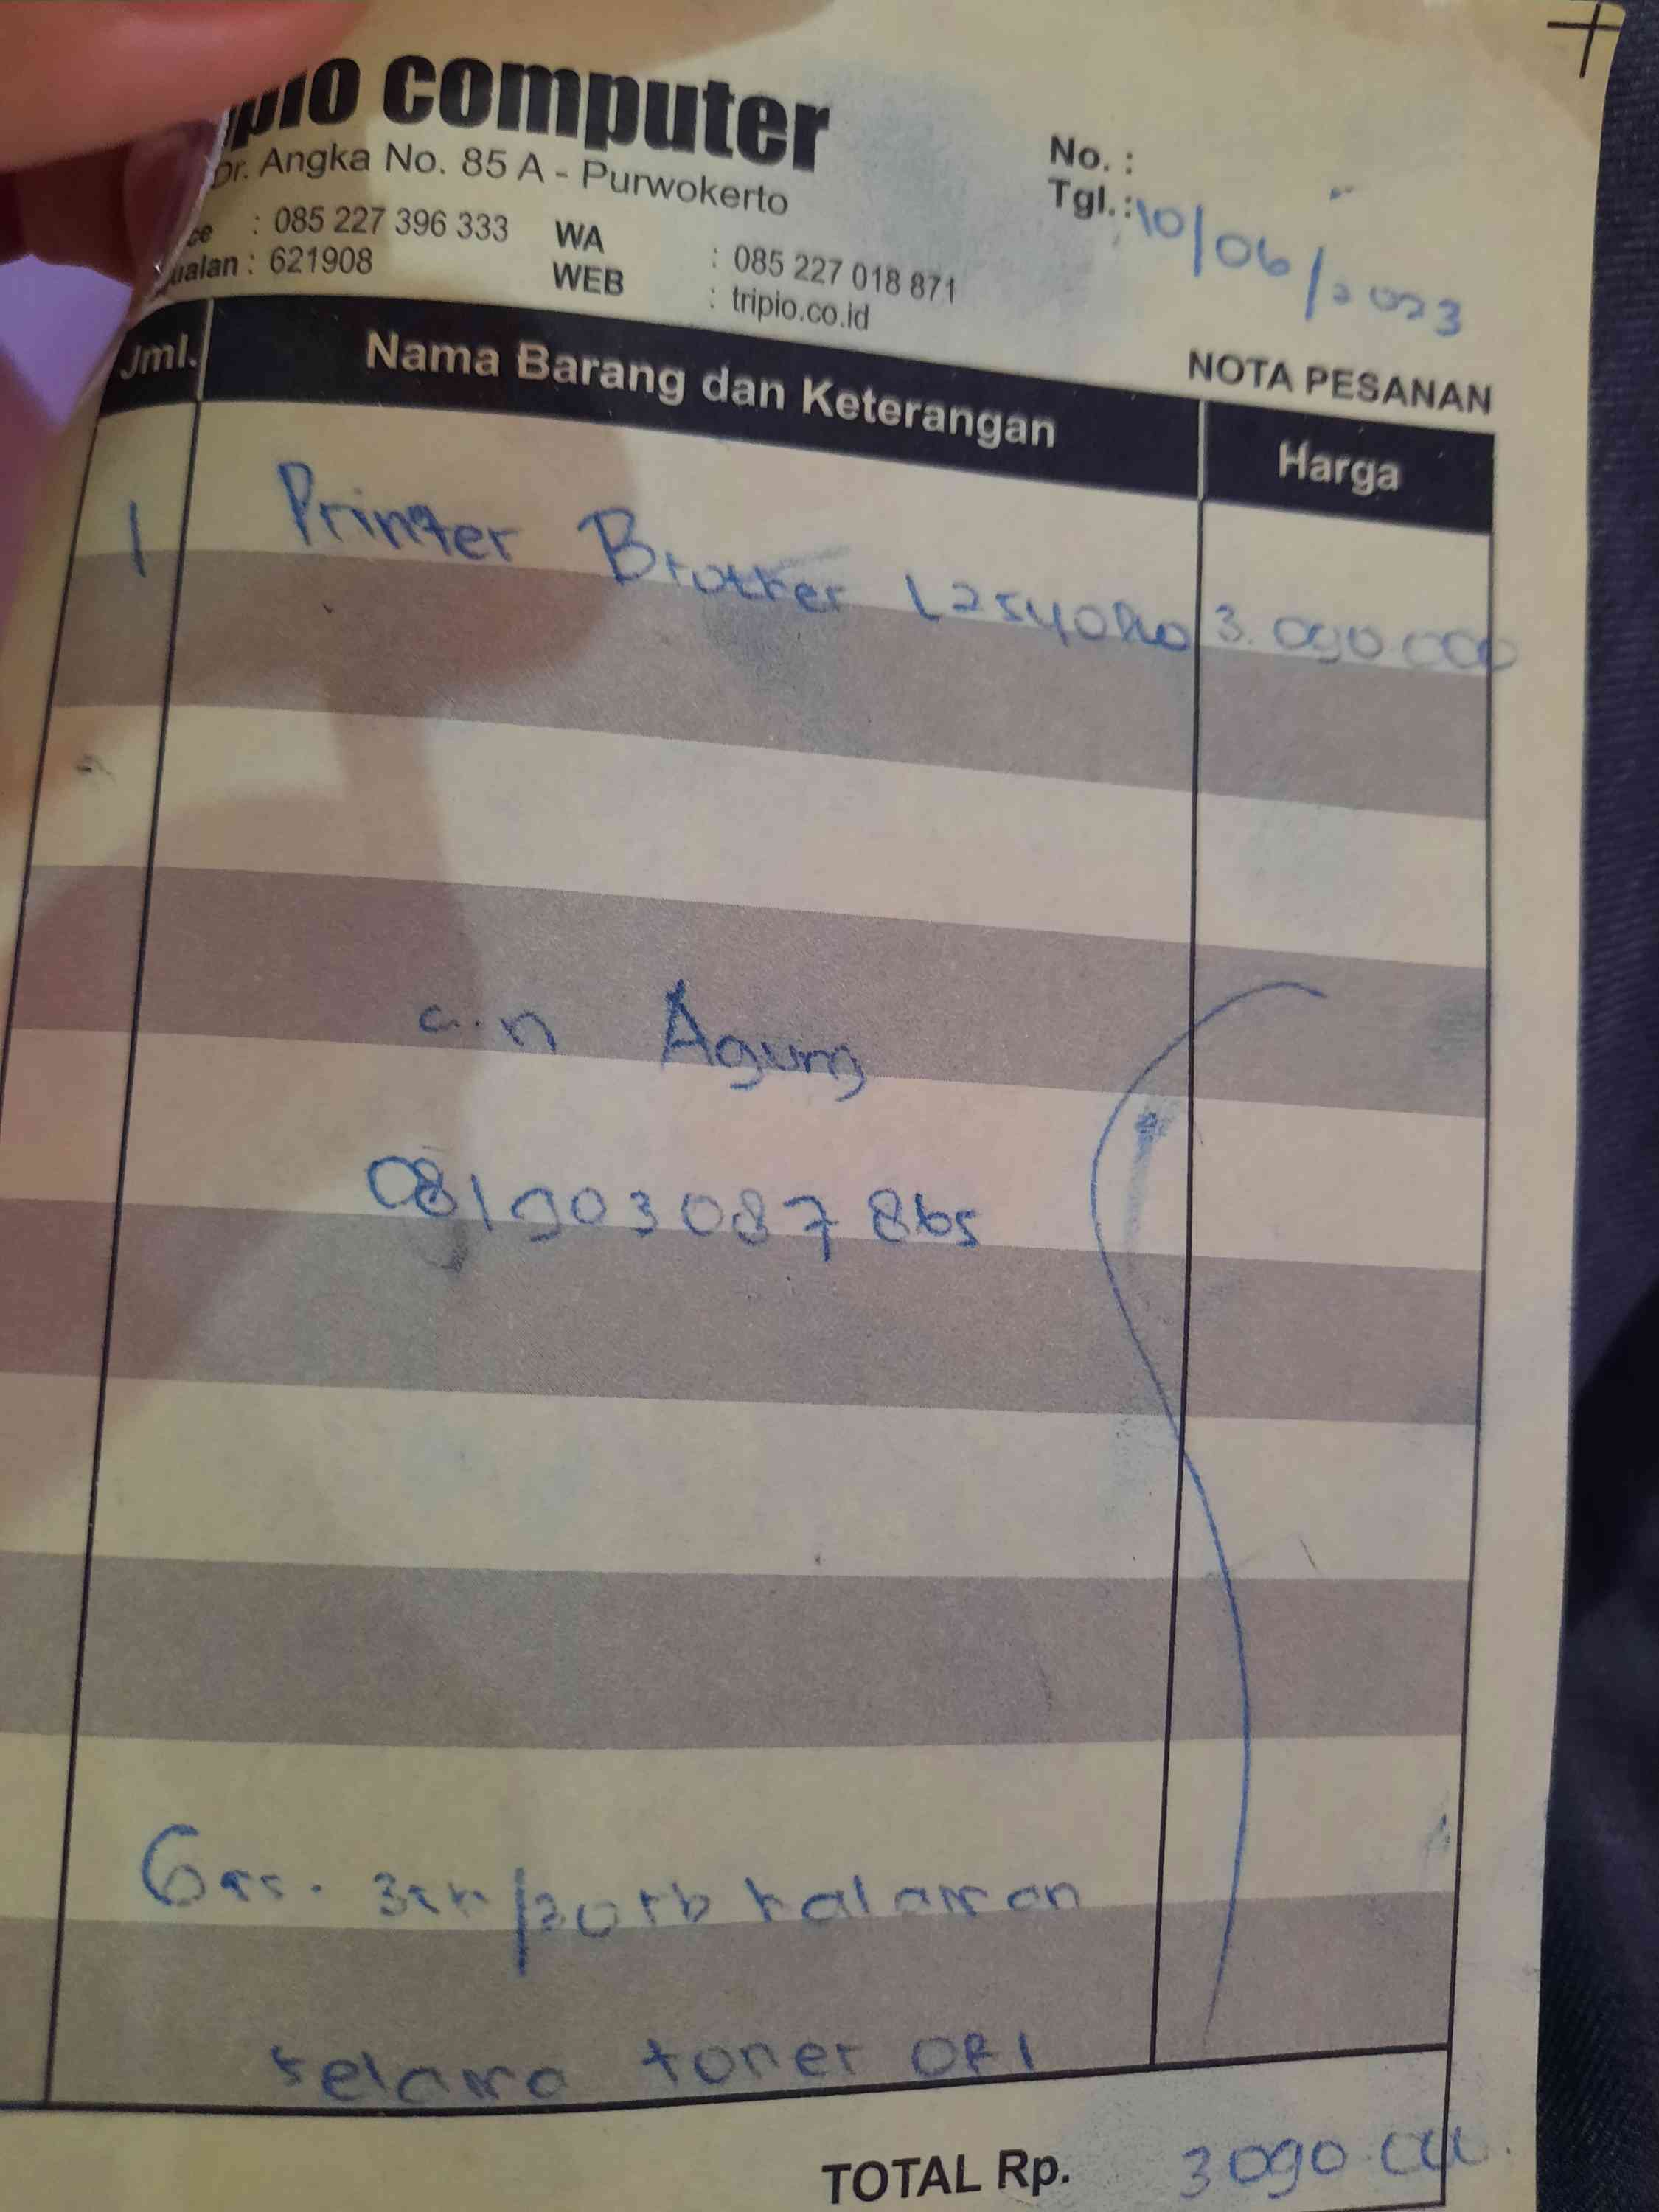 pio computer
Dr. Angka No. 85 A - Purwokerto
ce : 085 227 396 333 WA : 085 227 018 871
ualan : 621908 WEB : tripio.co.id
No. :
Tgl.: 10/06/2023
NOTA PESANAN
Jml. Nama Barang dan Keterangan Harga
1 Printer Brother L2540DW 3.090.000
a.n Agung
081903087865
Gar. 3th/30rb halaman
selama toner ORI
TOTAL Rp. 3090.000